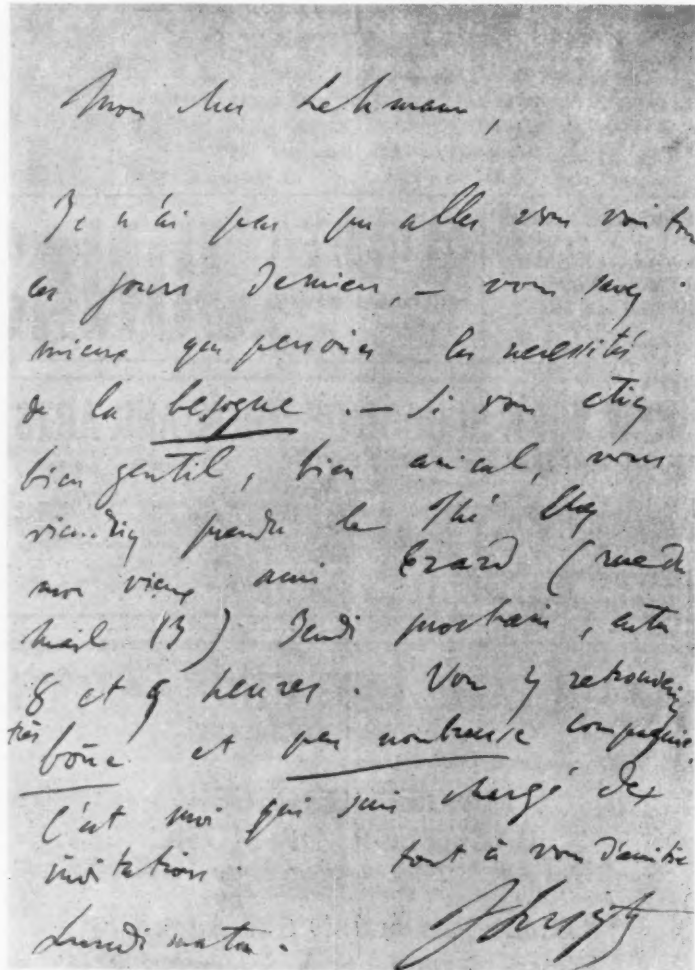 Mon cher Lehmann,
Je n'ai pas pu aller vous voir tous
ces jours derniers, — vous savez
mieux que personne les necessités
de la besogne. — Si vous etiez
bien gentil, bien amical, vous
viendriez prendre le Thé chez
mon vieux ami Erard (rue du
Mail 13) Jeudi prochain, entre
8 et 9 heures. Vous y retrouverez
très bone et peu nombreuse compagnie.
C'est moi qui suis chargé des
invitations. tout à vous d'amitié
Lundi matin. F Liszt